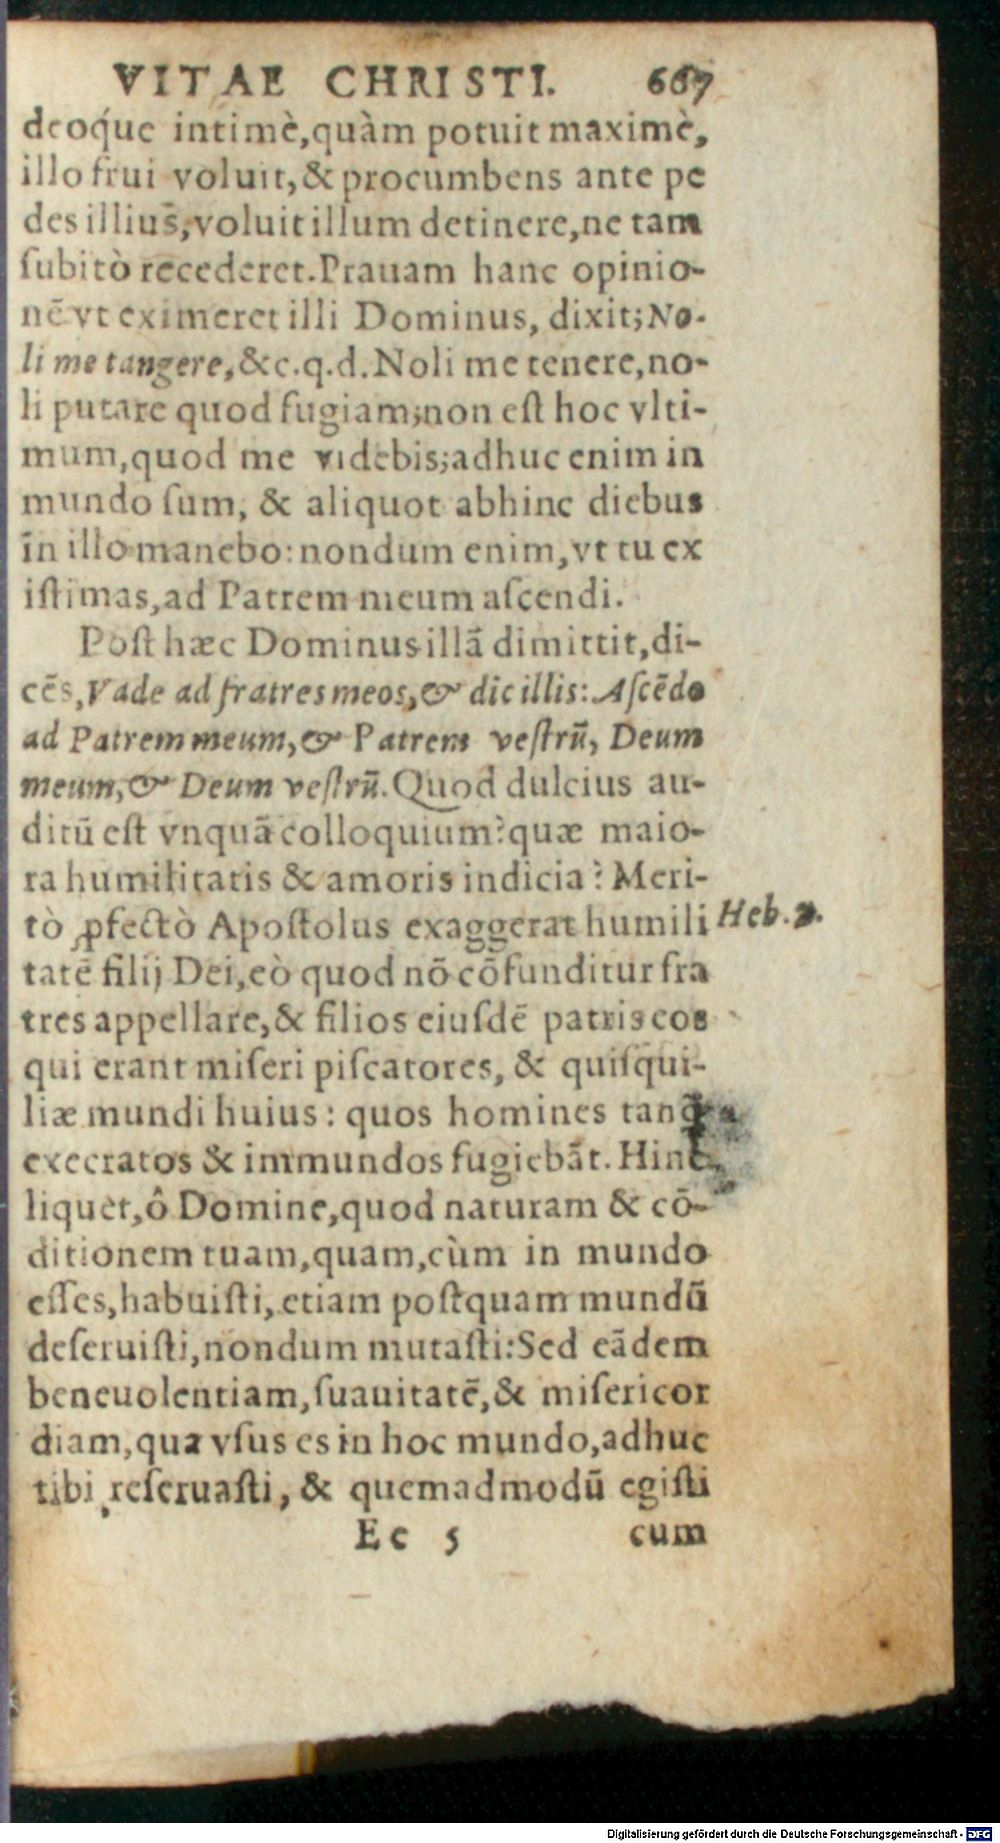 VITAE CHRISTI. 667
deoq́ue intimè,quàm potuit maximè,
illo frui voluit,& procumbens ante pe
des illius,voluit illum detinere,ne tam
ſubitò recederet.Prauam hanc opinio-
nē vt eximeret illi Dominus, dixit;No-
li me tangere,&c.q.d.Noli me tenere,no-
li putare quod fugiam;non eſt hoc vlti-
mum,quod me videbis;adhuc enim in
mundo ſum, & aliquot abhinc diebus
in illo manebo:nondum enim,vt tu ex
iſtimas,ad Patrem meum aſcendi.
Poſt hæc Dominus illā dimittit,di-
cēs,Vade ad fratres meos,& dic illis: Aſcēdo
ad Patrem meum,& Patrem veſtrū, Deum
meum,& Deum veſtrū.Quod dulcius au-
ditū eſt vnquā colloquium?quæ maio-
ra humilitatis & amoris indicia? Meri-
tò ꝓfectò Apoſtolus exaggerat humili
Heb. 2.
tatē filij Dei,eò quod nō cōfunditur fra
tres appellare,& filios eiuſdē patris eos
qui erant miſeri piſcatores, & quiſqui-
liæ mundi huius: quos homines tanq̃
execratos & immundos fugiebāt. Hinc
liquet,ô Domine,quod naturam & cō-
ditionem tuam,quam,cùm in mundo
eſſes,habuiſti,etiam poſtquam mundū
deſeruiſti,nondum mutaſti:Sed eādem
beneuolentiam,ſuauitatē,& miſericor
diam,qua vſus es in hoc mundo,adhuc
tibi reſeruaſti, & quemadmodū egiſti
Ee 5 cum
Digitalisierung gefördert durch die Deutsche Forschungsgemeinschaft - DFG